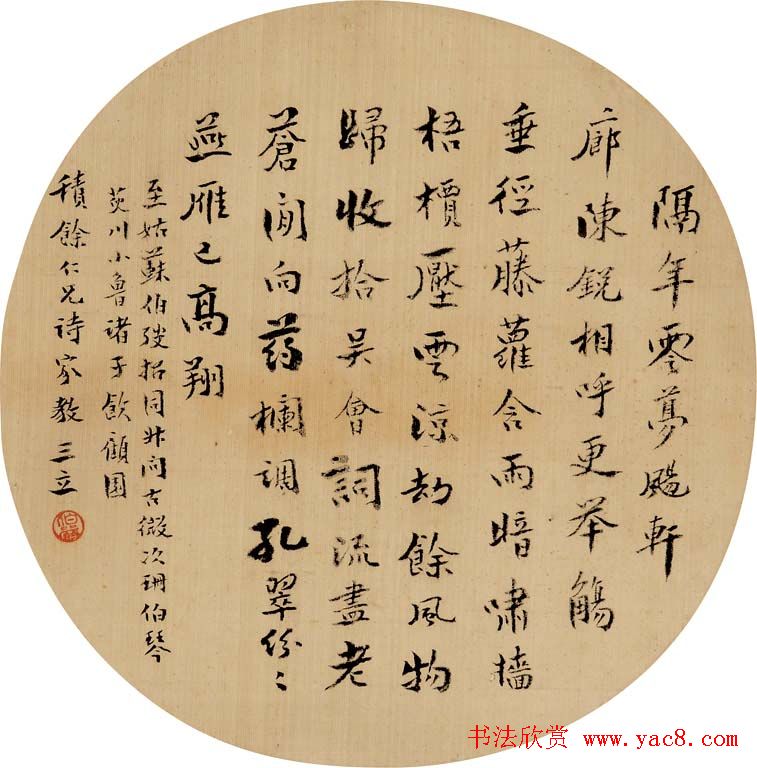 隔年零夢颺軒
廊陳鋭相呼更举觴
垂徑藤蘿含雨暗嘯墻
梧檟壓雲涼劫餘風物
歸收拾吴會詞流盡老
蒼閒向药欄調孔翠份〻
燕雁已高翔
至姑蘇伯弢招同叔问古微次珊伯琴
芰川小魯諸子飲顧園
積餘仁兄詩家教 三立
书法欣赏 www.yac8.com